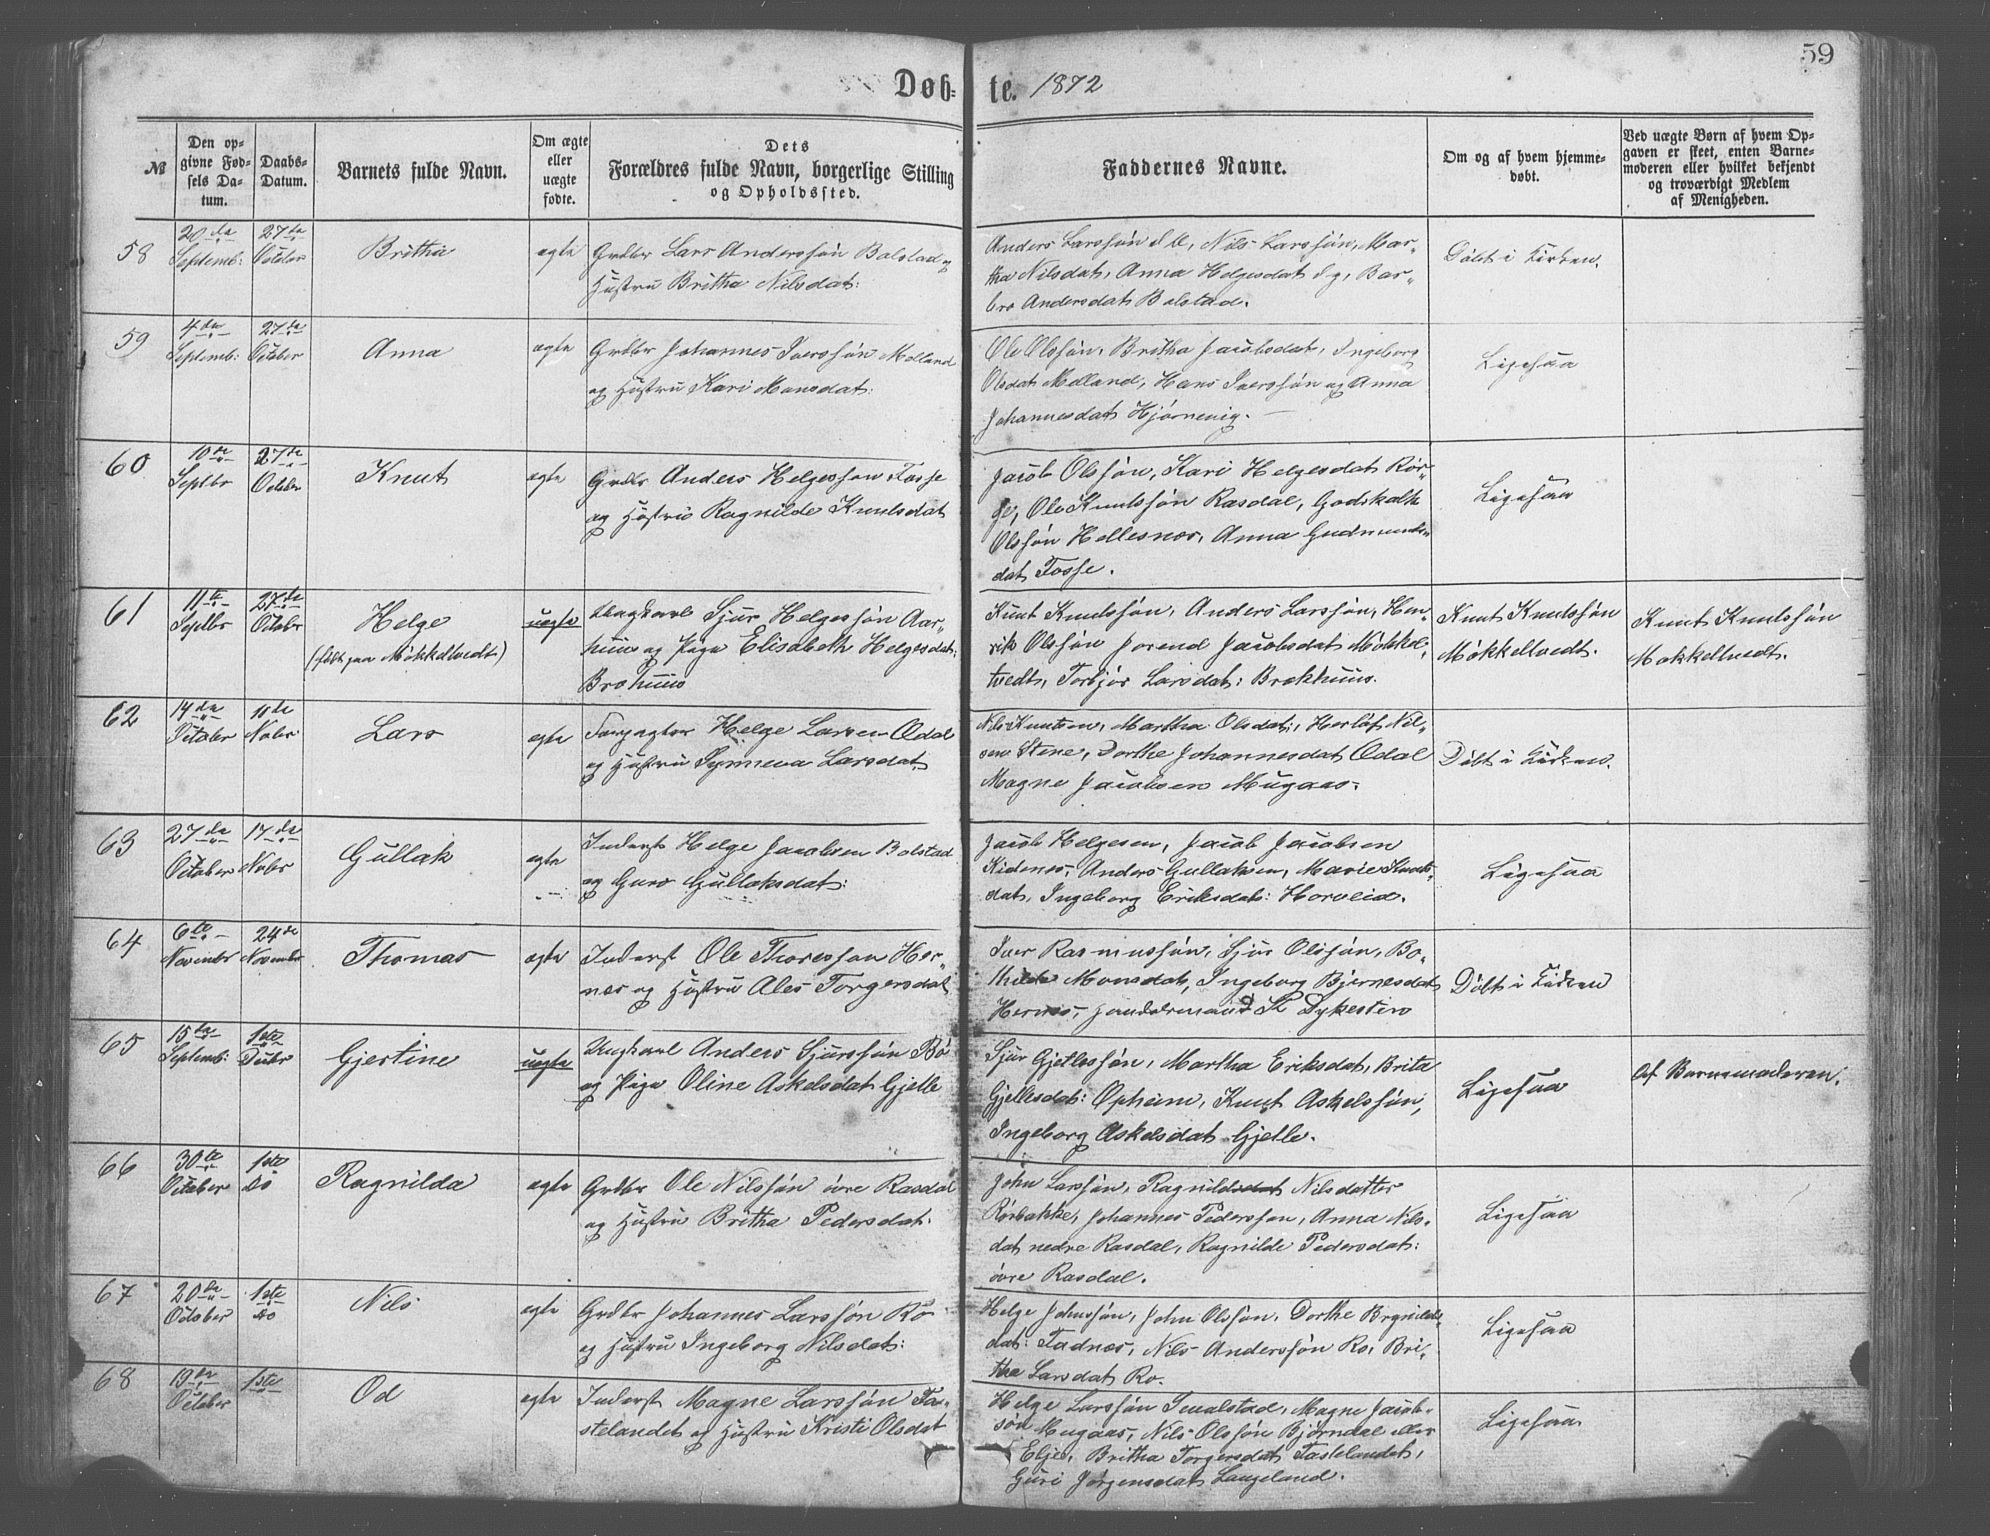 59
Døb- te. 1872
№
Den op-
givne Fød-
sels Da-
tum.
Daabs-
Datum.
Barnets fulde Navn.
Om ægte
eller
uægte
fødte.
Dets
Forældres fulde Navn, borgerlige Stilling
og Opholdssted.
Faddernes Navne.
Om og af hvem hjemme-
døbt.
Ved uægte Børn af hvem Op-
gaven er skeet, enten Barne-
moderen eller hvilket bekjendt
og troværdigt Medlem
af Menigheden.
58
20de
Septemb:
27de
October
Britha
ægte
Grdbr Lars Anderssøn Bolstad og
Hustru Britha Nilsdat:
Anders Larssøn, Nils Larssøn, Mar-
tha Nilsdat, Anna Helgesdat, Bar-
bro Andersdat Bolstad.
Døbt i Kirken.
59
4de
Septemb:
27de
October
Anna
ægte
Grdbr Johannes Iverssøn Molland
og Hustru Kari Monsdat:
Ole Olssøn, Britha Jacobsdat, Ingeborg
Olsdat Molland, Hans Iverssøn og Anna
Johannesdat Hjørnevig.
Ligesaa
60
10de
Septbr
27de
Octobr
Knut
ægte
Grdbr Anders Helgessøn Fosse
og Hustru Ragnilde Knutsdat
Jacob Olssøn, Kari Helgesdat Rør-
ge, Ole Knutssøn Rasdal, Godskalk
Olssøn Hellesnes, Anna Gudmunds-
dat Fosse.
Ligesaa
61
11te
Septbr
27de
Octobr
Helge
(født paa Møkkeltvedt)
uægte
Ungkarl Sjur Helgessøn Aar-
huus og Pige Elisabeth Helgesdat:
Brohuus
Knut Knutssøn, Anders Larssøn, Hen-
rik Olssøn Jorend Jacobsdat Møkkel-
tvedt, Torbjør Larsdat: Brækhuus.
Knut Knutssøn
Møkkeltvedt.
Knut Knutssøn
Møkkeltvedt.
62
14de
October
10de
Nobr
Lars
ægte
Forpagter Helge Larsen Ødal
og Hustru Synneva Larsdat
Nils Knutsen, Martha Olsdat, Herlof Nil-
sen Stene, Dorthe Johannesdat Ødal
Magne Jacobsen Mugaas.
Døbt i Kirken.
63
27de
October
17de
Nobr
Gullak
ægte
Inderst Helge Jacobsen Bolstad
og Guro Gullaksdat:
Jacob Helgesen, Jacob Jacobsen
Kidenes, Anders Gullaksen, Marie Knuts-
dat, Ingeborg Eriksdat: Horveid.
Ligesaa
64
6te
Novembr
24de
Novembr
Thomas
ægte
Inderst Ole Thoressøn Her-
næs og Hustru Ales Torgersdat
Iver Rasmussøn, Sjur Olssøn, Bo-
thilde Monsdat, Ingeborg Bjørnesdat
Hernes, Lendsmand Dykesten
Døbt i Kirken
65
15de
Septemb:
1ste
Decbr
Gjertine
uægte
Ungkarl Anders Sjurssøn Bø
og Pige Oline Askelsdat Gjelle
Sjur Gjetlessøn, Martha Eriksdat, Brita
Gjellesdat: Opheim, Knut Askelssøn,
Ingeborg Askelsdat Gjelle.
Ligesaa
Af Barnemoderen.
66
30te
October
1ste
do
Ragnilda
ægte
Grdbr Ole Nilssøn øvre Rasdal
og Hustru Britha Pedersdat:
John Larssøn, Ragnildsdat Nilsdatter
Rørbakke, Johannes Pederssøn, Anna Nils-
dat nedre Rasdal, Ragnilde Pedersdat:
øvre Rasdal.
Ligesaa
67
20de
October
1ste
do
Nils
ægte
Grdbr Johannes Larssøn Ro
og Hustru Ingeborg Nilsdat:
Helge Johnssøn, John Olssøn, Dorthe Brynilds-
dat: Fadnæs, Nils Anderssøn Ro, Bri-
tha Larsdat Ro.
Ligesaa
68
19de
October
1ste
Od
ægte
Inderst Magne Larssøn Fas-
stelandet og Hustru Kristi Olsdat
Helge Larssøn Tveitstad, Magne Jacob-
søn Mugaas, Nils Olssøn Bjørndal eller
Eljed, Britha Torgersdat Fastelandet,
Guri Jørgensdat Langeland.
Ligesaa